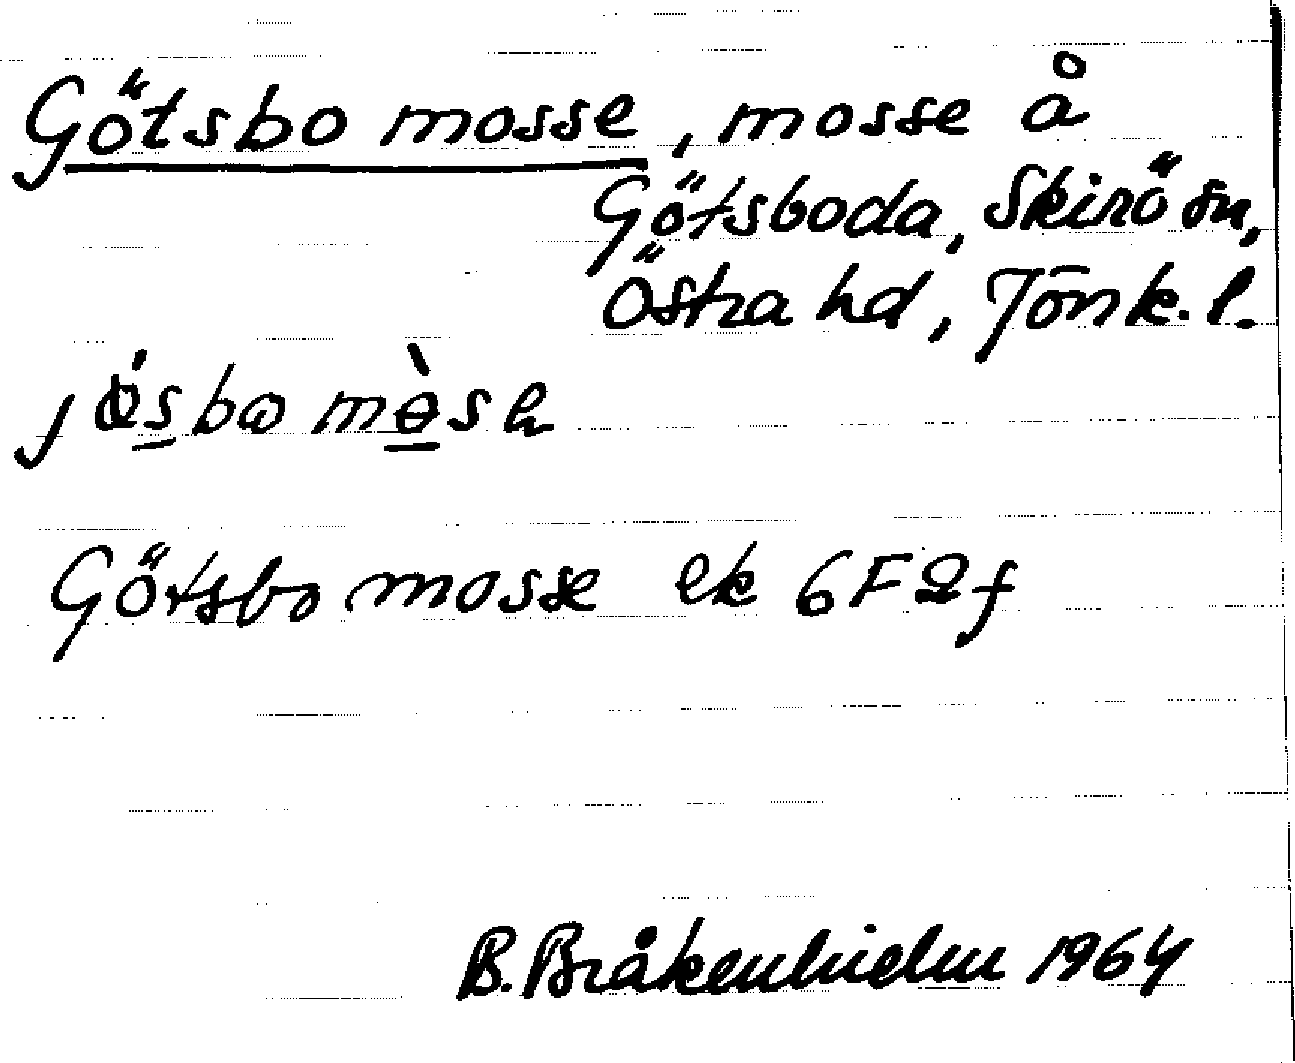 Götsbo mosse, mosse å
Götsboda, Skirö sn,
Östra hd, Jönk. l.
Götsbo mosse ek 6F2f
B. Bråkenhielm 1964